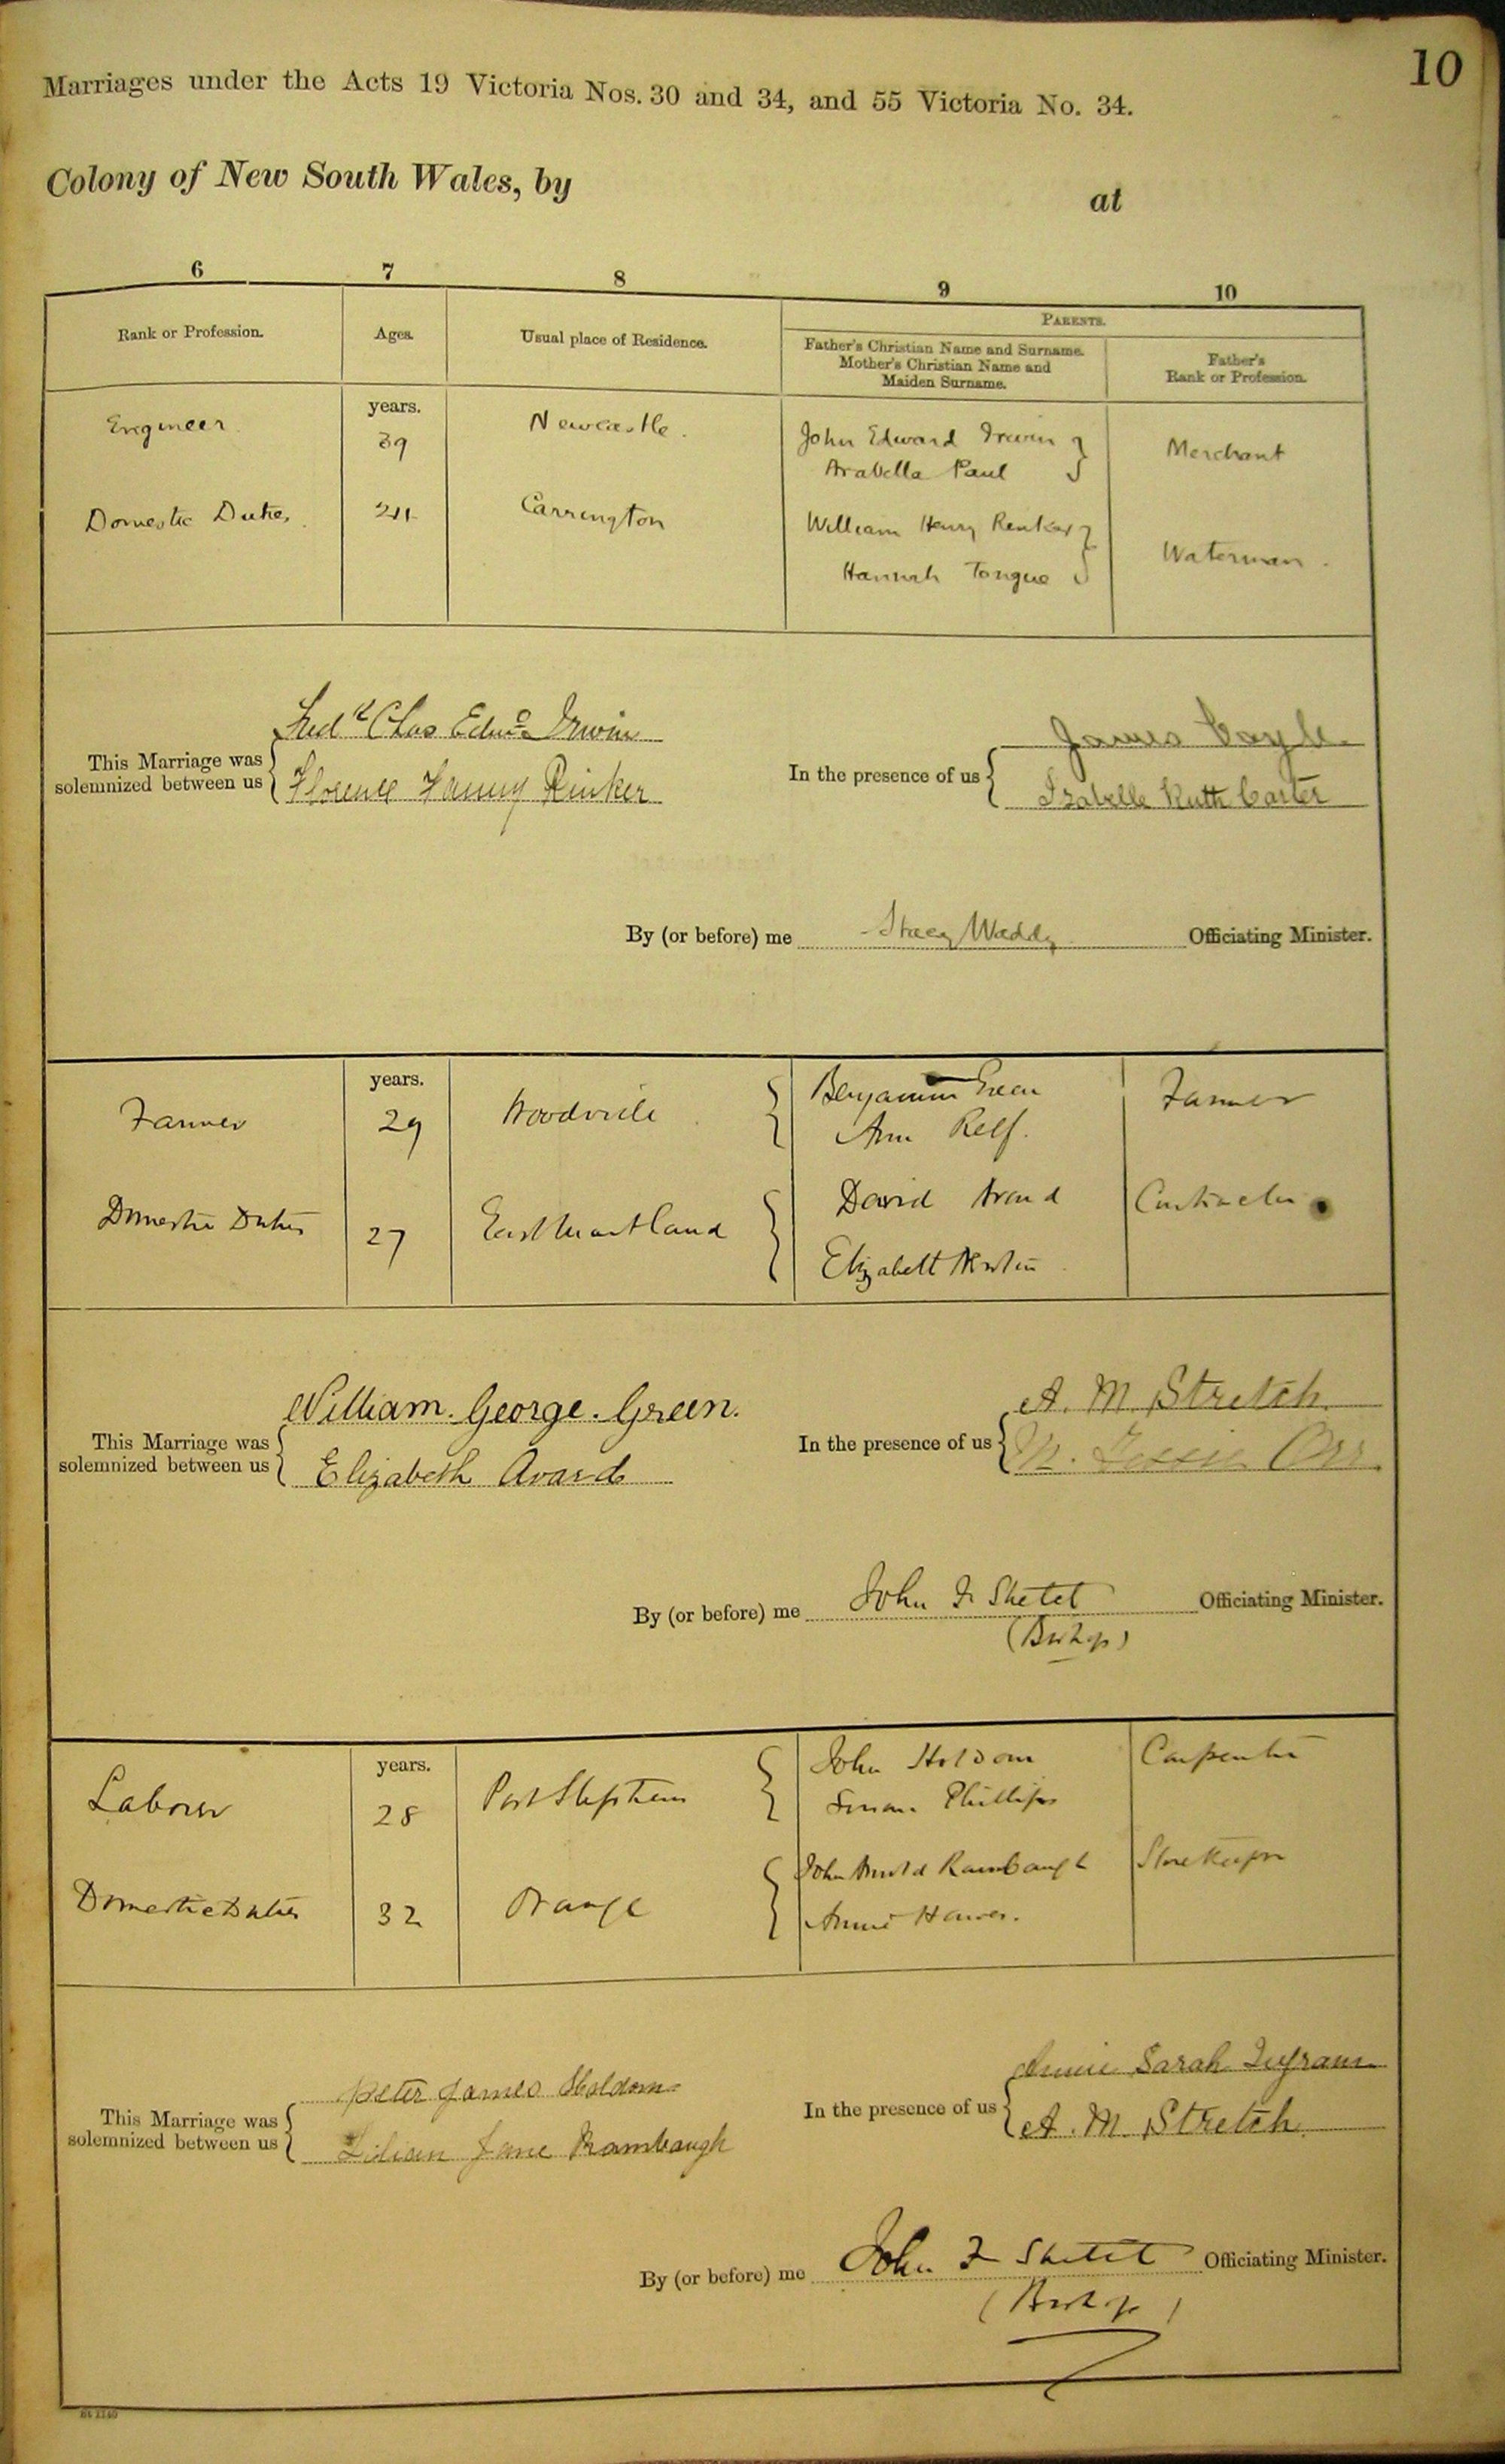 10
Marriages under the Acts 19 Victoria Nos. 30 and 34, and 55 Victoria No. 34.
Colony of New South Wales, by at
6 7 8 9 10
PARENTS.
Rank or Profession. Ages. Usual place of Residence. Father's Christian Name and Surname. Father's
Mother's Christian Name and Rank or Profession.
Maiden Surname.
years.
Engineer 39 Newcastle. John Edward Irwin Merchant
Arabella Paul
Domestic Duties. 24 Carrington William Henry Rinker Waterman.
Hannah Tongue
Fredk Chas Edwd Irwin James Coyle
This Marriage was In the presence of us
solemnized between us Florence Fanny Rinker Isabelle Ruth Carter
By (or before) me Stacy Waddy Officiating Minister.
years.
Farmer 29 Woodville Benjamin Green Farmer
Ann Relf.
Domestic Duties 27 East Maitland David Avard Contractor
Elizabeth
William. George. Green. A. M. Stretch.
This Marriage was In the presence of us
solemnized between us Elizabeth Avard M. Orr.
By (or before) me John F Stretch Officiating Minister.
(Bishop)
years.
Labourer 28 Port Stephens John Holdom Carpenter
Susan Phillips
Domestic Duties 32 Orange John Arnold Rambaugh Storekeeper
Annie Hawes.
Peter James Holdom Annie Sarah Ingram
This Marriage was In the presence of us
solemnized between us Lilian Jane Rambaugh A. M. Stretch.
By (or before) me John F Stretch Officiating Minister.
(Bishop)